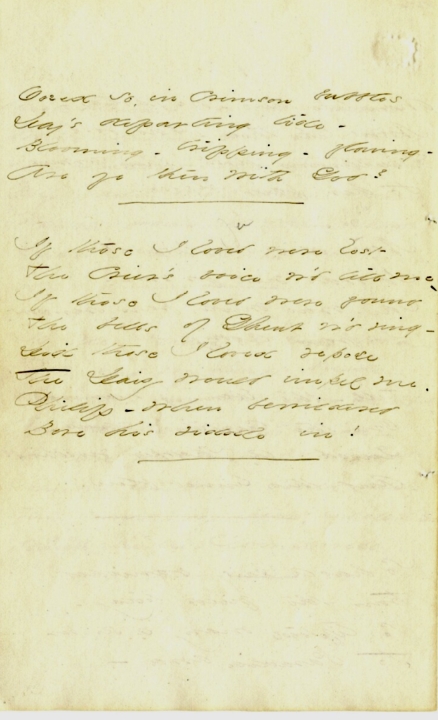 Oozed so, in crimson bubbles
Day's departing tide -
Blooming - tripping - flowing -
Are ye then with God?
If those I loved were lost
The Crier's voice w'd tell me
If those I loved were found
The bells of Ghent w'd ring -
Did those I loved repose
The Daisy would impel me.
Philip - when bewildered
Bore his riddle in!